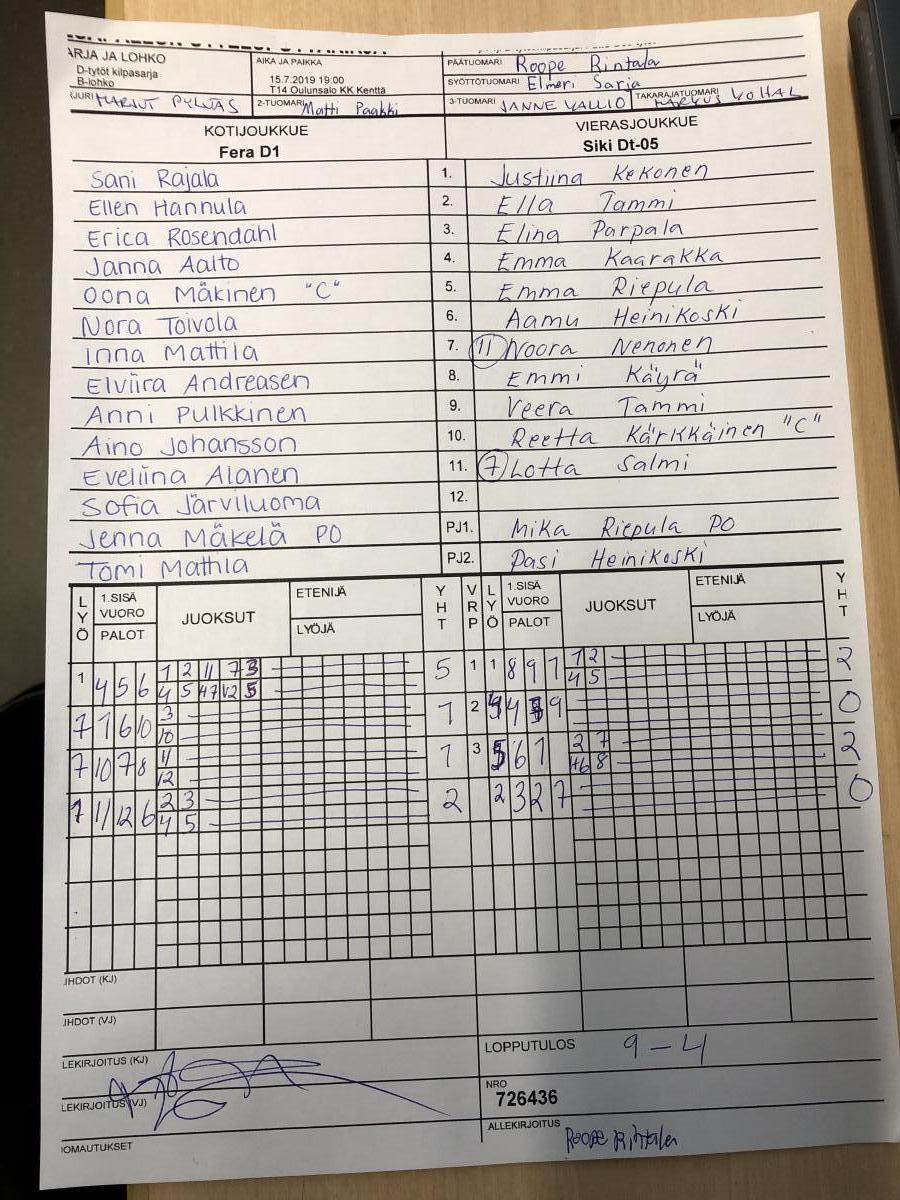 ARJA JA LOHKO
D-tytöt kilpasarja
B-lohko
AIKA JA PAIKKA
15.7.2019 19:00
T14 Oulunsalo KK Kenttä
PÄÄTUOMARI Roope Rintala
SYÖTTÖTUOMARI Elmeri Sarja
2-TUOMARI Matti Paakki
3-TUOMARI JANNE KALLIO TAKARAJATUOMARI
KOTIJOUKKUE VIERASJOUKKUE
Fera D1 Siki Dt-05
Sani Rajala 1. Justiina Kekonen
Ellen Hannula 2. Ella Tammi
Erica Rosendahl 3. Elina Parpala
Janna Aalto 4. Emma Kaarakka
Oona Mäkinen "C" 5. Emma Riepula
Nora Toivola 6. Aamu Heinikoski
Inna Mattila 7. 11 Noora Nenonen
Elviira Andreasen 8. Emmi Käyrä
Anni Pulkkinen 9. Veera Tammi
Aino Johansson 10. Reetta Kärkkäinen "C"
Eveliina Alanen 11. 7 Lotta Salmi
Sofia Järviluoma 12.
Jenna Mäkelä PO PJ1. Mika Riepula PO
Tomi Mattila PJ2. Pasi Heinikoski
LYÖ 1.SISÄ VUORO PALOT JUOKSUT ETENIJÄ LYÖJÄ YHT VRP LYÖ 1.SISÄ VUORO PALOT JUOKSUT ETENIJÄ LYÖJÄ YHT
1 4 5 6 1 2 11 7 3 5 1 1 8 9 1 1 2 2
4 5 5 4 5
7 1 6 10 3 1 2 9 0
10
7 10 7 8 11 1 3 5 6 1 2 7 2
12 8
7 11 12 6 2 3 2 2 3 2 7 0
4 5
JHDOT (KJ)
JHDOT (VJ)
LEKIRJOITUS (KJ)
LOPPUTULOS 9-4
LEKIRJOITUS (VJ)
NRO
726436
ALLEKIRJOITUS Roope Rintala
IOMAUTUKSET